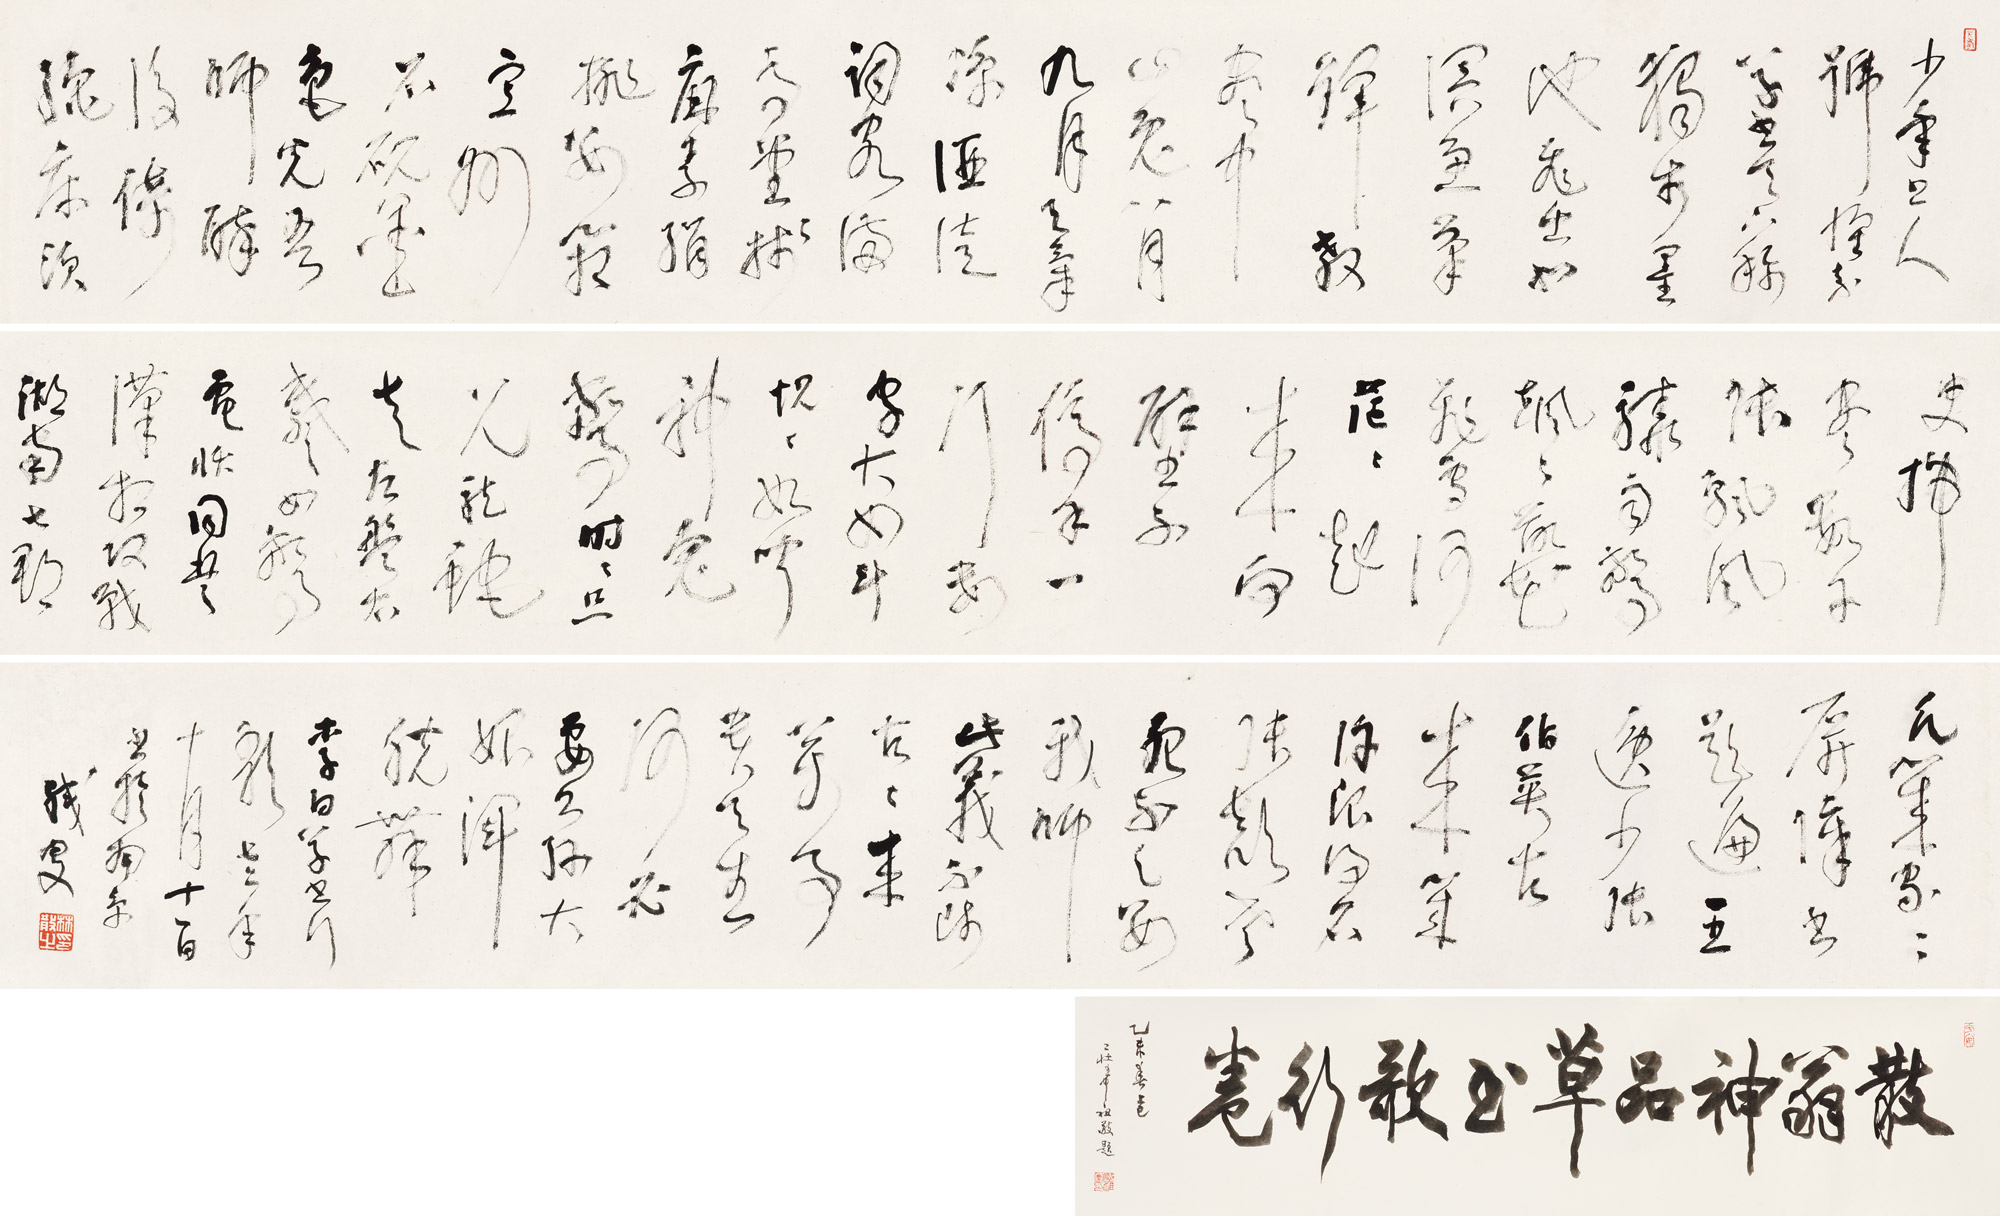 少年上人
號懷素
草書天下称
獨步墨
池飛出北
溟魚筆
鋒殺
盡中
山兔八月
九月天氣
凉酒徒
詞客满
高堂牋
麻素絹
排數箱
宣州
石硯墨
色光吾
師醉
後倚
繩床須
臾掃
盡數千
張飄風
驟雨驚
颯〻落花
飛雪何
茫〻起
来向
壁不
停手一
行數
字大如斗
怳〻如聞
神鬼
驚時〻只
見龍蛇
走左盤右
蹙如驚
電狀同楚
漢相攻戰
湖南七郡
凡幾家〻
屏障書
題遍王
逸少張
伯英古
来幾
許浪得名
張顛老
死不足數
我師
此義不師
古〻来
萬事
貴天生
何必
要公孫大
娘渾
脱舞
李白草书行
歌 年
十月十一日
書於南京
殘叟
林散之印
散翁神品草书歌行卷
乙未
題